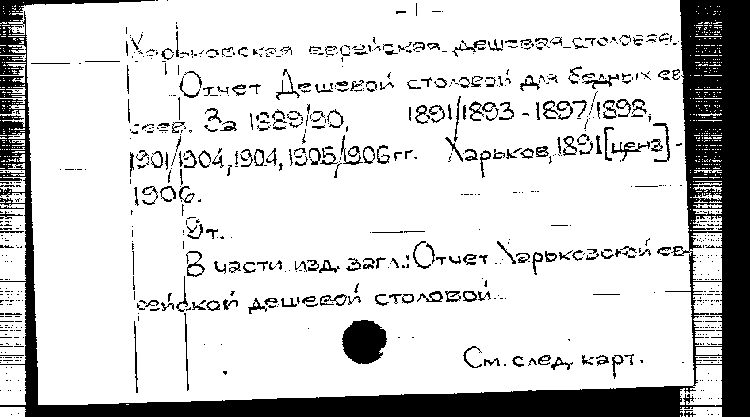 - 1 -
Харьковская еврейская дешевая столовая.
Отчет Дешевой столовой для бедных ев-
реев. За 1889/90, 1891/1893 - 1897/1898,
1901/1904, 1904, 1905/1906 гг. Харьков, 1891 [ценз] -
1906.
9т.
В части изд. загл.: Отчет Харьковской ев-
рейской дешевой столовой.
См. след. карт.